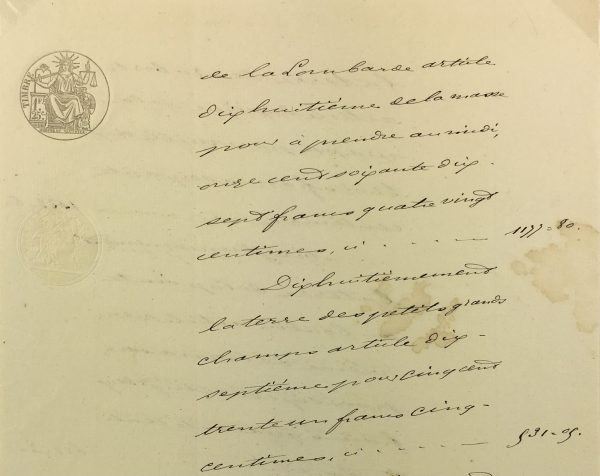 TIMBRE
de la Lombarde article
dixhuitième de la masse
pour à prendre au midi,
onze cent soixante dix-
sept francs quatre vingt
centimes, ci . . . . 1177=80.
Dixhuitièmement
la terre des petits grands
champs article dix-
septième pour cinq cent
trente un francs cinq-
centimes, ci . . . . . 531=05.